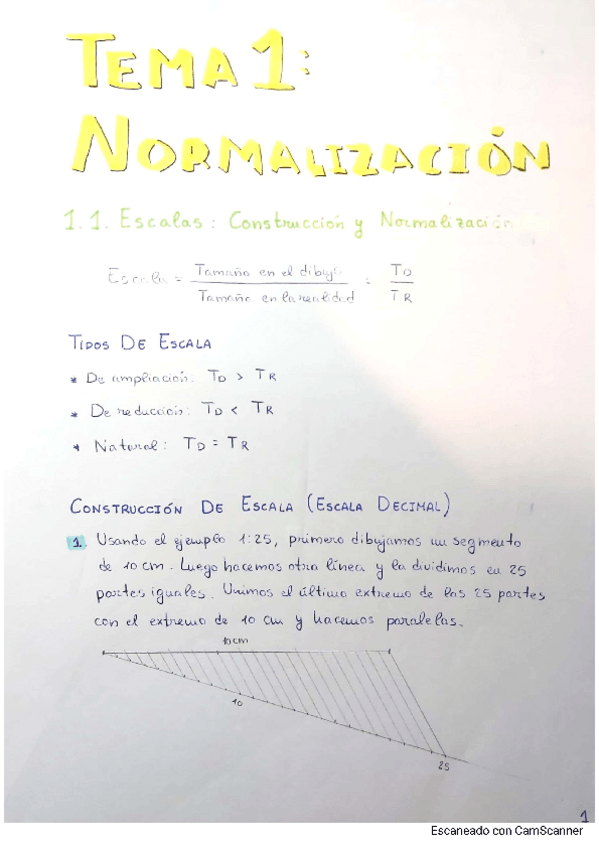 TEMA 1:
NORMALIZACIÓN
1.1. Escalas: Construcción y Normalización
Escala = Tamaño en el dibujo / Tamaño en la realidad = TD / TR
TIPOS DE ESCALA
* De ampliación: TD > TR
* De reducción: TD < TR
* Natural: TD = TR
CONSTRUCCIÓN DE ESCALA (ESCALA DECIMAL)
1. Usando el ejemplo 1:25, primero dibujamos un segmento
de 10 cm. Luego hacemos otra línea y la dividimos en 25
partes iguales. Unimos el último extremo de las 25 partes
con el extremo de 10 cm y hacemos paralelas.
10 cm
10
25
1
Escaneado con CamScanner